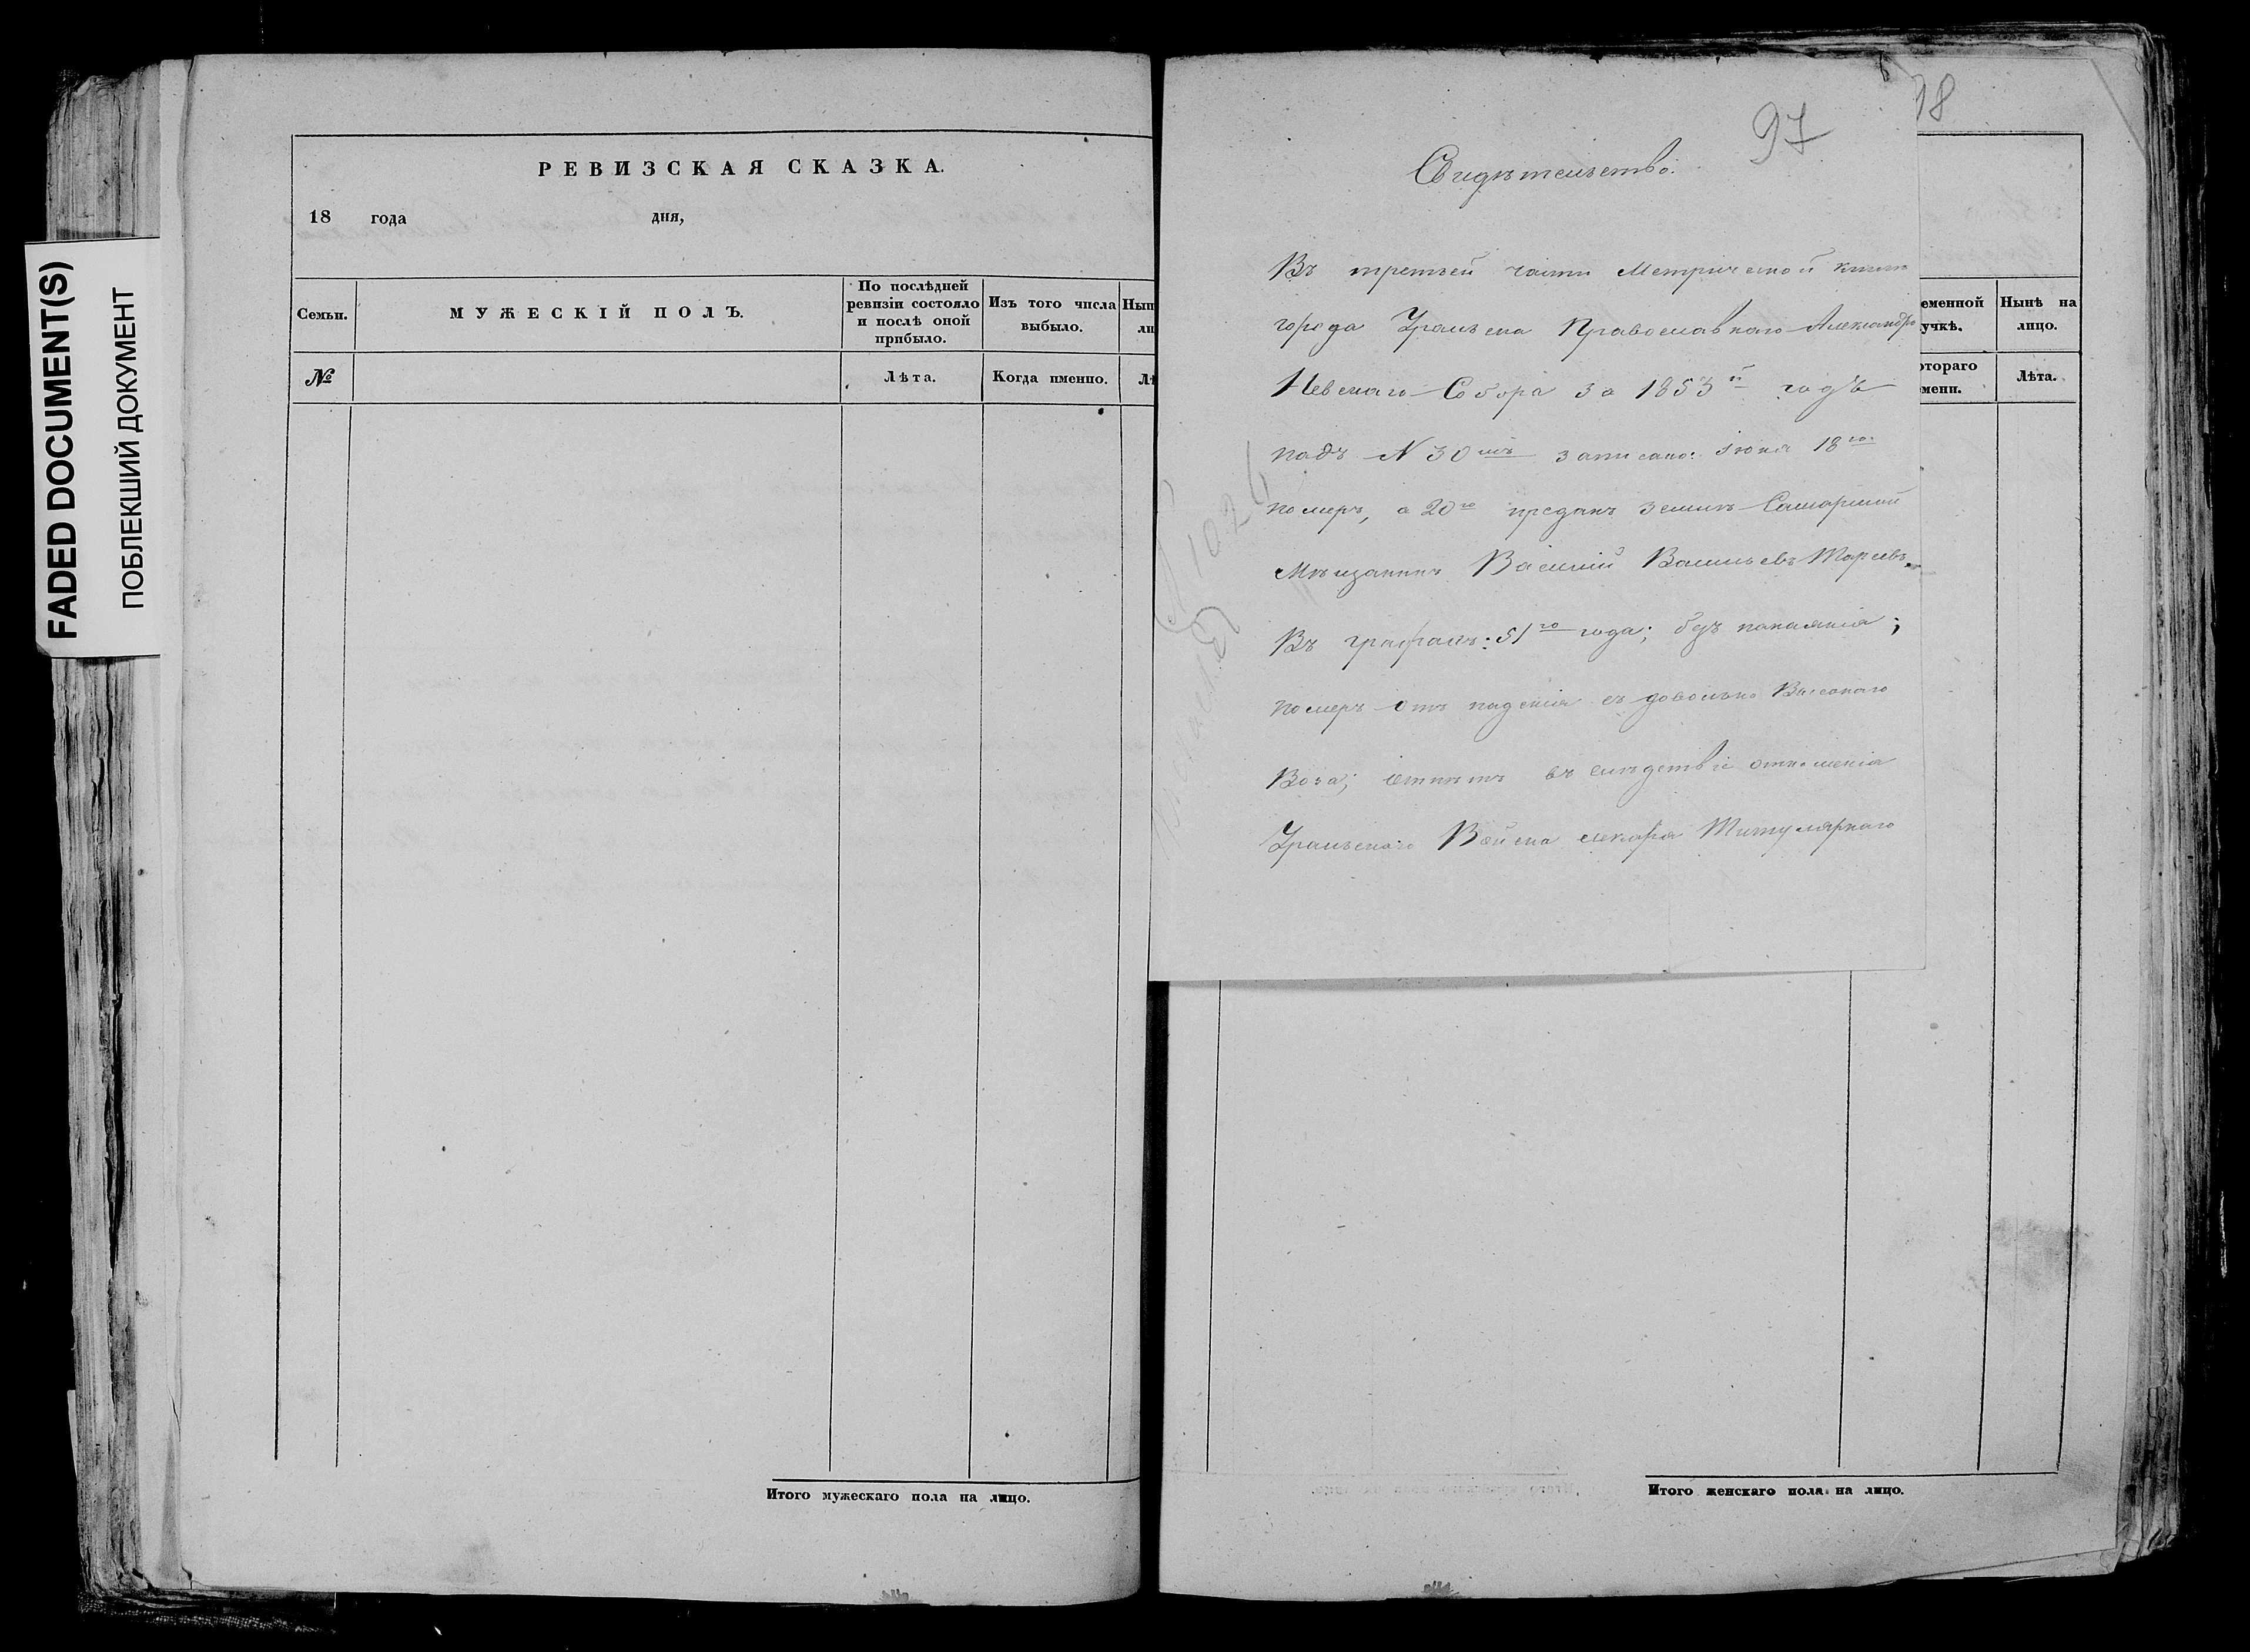 FADED DOCUMENT(S)
ПОБЛЕКШИЙ ДОКУМЕНТ
РЕВИЗСКАЯ СКАЗКА.
18 года дня,
Семьи.
МУЖЕСКІЙ ПОЛЪ.
По послѣдней
ревизіи состояло
и послѣ оной
прибыло.
Изъ того числа
выбыло.
№
Лѣта.
Когда именно.
Итого мужескаго пола на лицо.
97
98
Свидѣтельство.
Въ третьей части Метрической книги
города Уральска Православнаго Александро
Невскаго Собора за 1853й годъ
подъ N 30мъ записано: Іюня 18го
померъ, а 20го преданъ землѣ Самарской
Мѣщанинъ Василій Васильевъ
Въ графахъ: 51го года; безъ покаянія;
померъ отъ паденія съ довольно Высокаго
Воза; въ слѣдствіе отношенія
Уральскаго Войска лекаря Титулярнаго
еменной
учкѣ.
Нынѣ на
лицо.
отораго
мени.
Лѣта.
Итого женскаго пола на лицо.